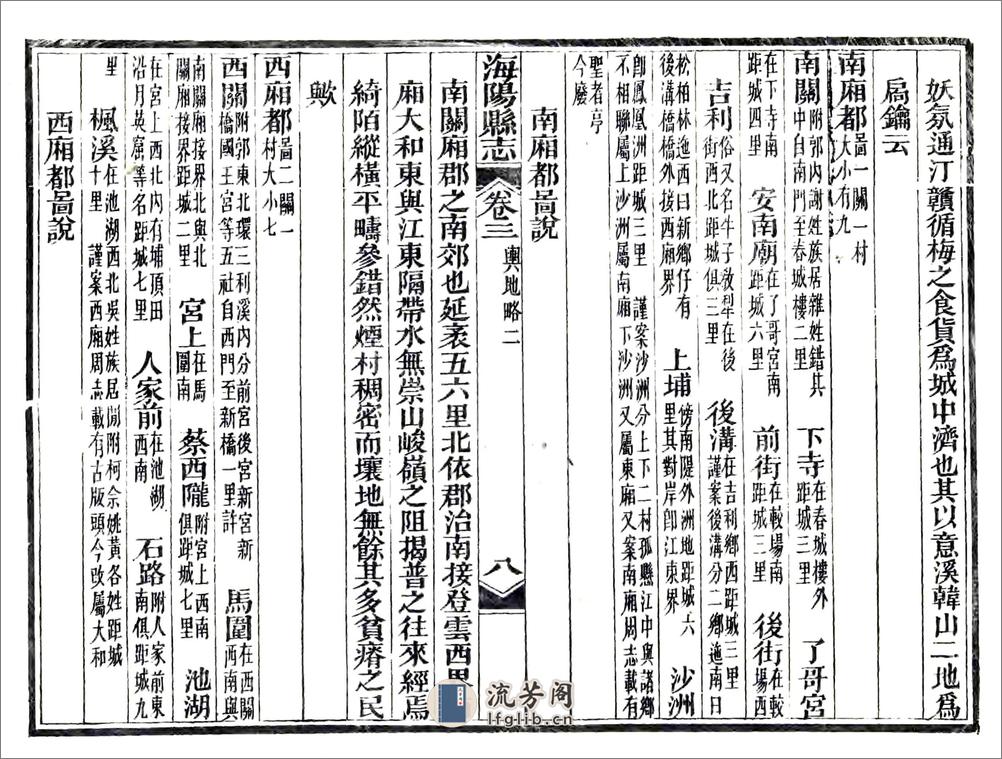 妖氛通汀贛循梅之食貨爲城中濟也其以意溪韓山二地爲
扃鑰云
南廂都圖一關一村大小有九
南關附郭内謝姓族居雜姓錯其中自南門至春城樓二里 下寺在春城樓外距城三里 了哥宮
在下寺南距城四里 安南廟在了哥宮南距城六里 前街在較場南距城三里 後街在較場西
吉利俗又名牛子敎犁在後街西北距城俱三里 後溝在吉利鄉西距城三里謹案後溝分二鄉迤南曰
松柏林迤西曰新鄉仔有後溝橋橋外接西廂界 上埔傍南隄外洲地距城六里其對岸卽江東界 沙洲
卽鳳凰洲距城三里 謹案沙洲分上下二村孤懸江中與諸鄉不相聯屬上沙洲屬南廂下沙洲又屬東廂又案南廂周志載有
聖者亭今廢
南廂都圖說
海陽縣志 卷三 輿地略二 八
南關廂郡之南郊也延袤五六里北依郡治南接登雲西界
廂大和東與江東隔帶水無崇山峻嶺之阻揭普之往來經焉
綺陌縱橫平疇參錯然煙村稠密而壤地無餘其多貧瘠之民
歟
西廂都圖二關一村大小七
西關附郭東北環三利溪内分前宮後宮新宮新橋國王宮等五社自西門至新橋一里許 馬圍在西關西南與
南關廂接界北與北關廂接界距城二里 宮上在馬圍南 蔡西隴附宮上西南俱距城七里 池湖
在宮上西北内有埔頂田沿月英窟等名距城七里 人家前在池湖西南 石路附人家前東南俱距城九
里 楓溪在池湖西北吳姓族居閒附柯佘姚黃各姓距城十里 謹案西廂周志載有古版頭今改屬大和
西廂都圖說
流芳阁
lfglib.cn